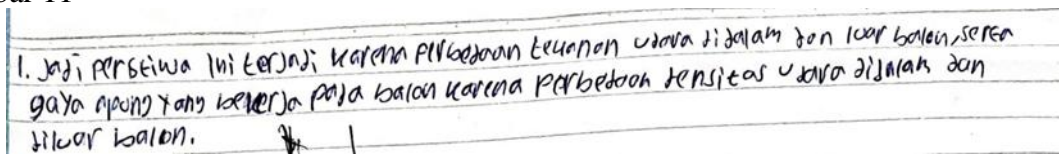 1. Jadi peristiwa ini terjadi karena perbedaan tekanan udara di dalam dan luar balon, serta
gaya apung yang bekerja pada balon karena perbedaan densitas udara didalam dan
diluar balon.